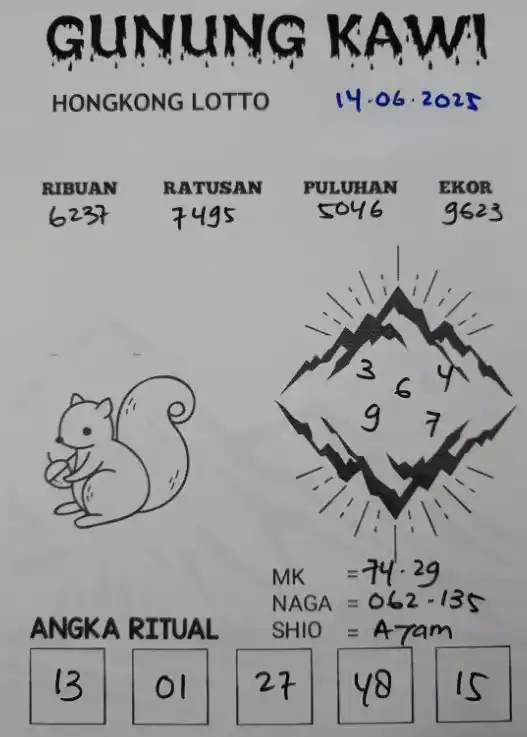 GUNUNG KAWI
HONGKONG LOTTO 14.06.2025
RIBUAN RATUSAN PULUHAN EKOR
6237 7495 5046 9623
3 4
6
9 7
MK = 74.29
NAGA = 062-135
SHIO = AYam
ANGKA RITUAL
13 01 27 48 15